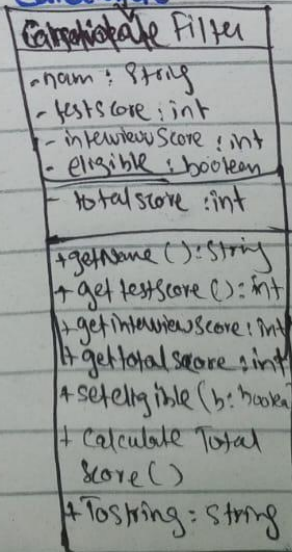 Filter
- nam : String
- testscore : int
- interviewScore : int
- eligible : boolean
- totalscore : int
+ getName () : String
+ get testScore () : int
+ getinterviewScore : int
+ gettotal score : int
+ seteligible (b : boolea
+ Calculate Total
Score ()
+ ToString : String